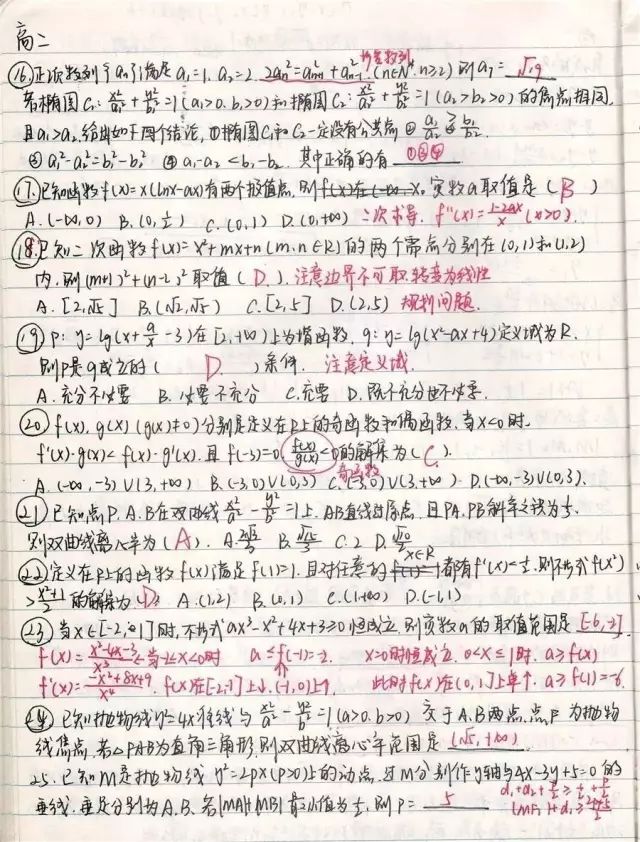 高二
⑯ 正次数列{an}满足a₁=1. a₂=2. 2an²=an+1²+an-1² (n∈N*. n≥2) 则a₇= √19
等差数列
若椭圆C₁: x²/a₁²+y²/b₁²=1(a₁>0.b₁>0)和椭圆C₂: x²/a₂²+y²/b₂²=1(a₂>b₂>0)的焦点相同.
且a₁>a₂. 给出如下四个结论, ①椭圆C₁和C₂一定没有公共点 ② a₁/a₂>b₁/b₂
③ a₁²-a₂²=b₁²-b₂² ④ a₁-a₂<b₁-b₂. 其中正确的有 ①③④
⑰ 已知函数f(x)=x(lnx-ax)有两个极值点. 则 实数a取值是 ( B )
A. (-∞,0) B. (0, 1/2) C. (0,1) D. (0,+∞) 二次求导. f''(x)=(1-2ax)/x (x>0).
⑱ 已知二次函数f(x)=x²+mx+n(m.n∈R)的两个零点分别在(0,1)和(1,2)
内. 则(m+1)²+(n-2)²取值( D ). 注意边界不可取 转变为线性
A. [2,√5] B. (√2,√5) C. [2,5] D. (2,5) 规划问题.
⑲ P: y=lg(x+a/x-3)在[2,+∞)上为增函数, q: y=lg(x²-ax+4)定义域为R.
则P是q成立的( D. )条件. 注意定义域.
A. 充分不必要 B. 必要不充分 C. 充要 D. 既不充分也不必要.
⑳ f(x), g(x) (g(x)≠0)分别是定义在R上的奇函数和偶函数, 当x<0时.
f'(x)·g(x)<f(x)·g'(x). 且f(-3)=0, f(x)/g(x)<0的解集为( C. )
奇函数
A. (-∞,-3)∪(3,+∞) B. (-3,0)∪(0,3) C. (-3,0)∪(3,+∞) D. (-∞,-3)∪(0,3).
㉑ 已知点P. A. B在双曲线x²/a²-y²/b²=1上. AB直线过原点, 且PA. PB斜率之积为1/3.
则双曲线离心率为( A ). A. 2√3/3 B. √15/3 C. 2 D. √10/2
x∈R
㉒ 定义在R上的函数f(x)满足f(1)=1. 且对任意的 都有f'(x)<1/2. 则不等式f(x²)
>(x²+1)/2的解集为( D ) A. (1,2) B. (0,1) C. (1,+∞) D. (-1,1)
㉓ 当x∈[-2,1]时, 不等式ax³-x²+4x+3≥0恒成立, 则实数a的取值范围是 [-6,-2]
f(x)=(x²-4x-3)/x³ ← 当-2≤x<0时 a≤f(-1)=-2. x=0时恒成立. 0<x≤1时. a≥f(x)
f'(x)=(-x²+8x+9)/x⁴. f(x)在[-2,-1]上↓. (-1,0)上↑. 此时f(x)在(0,1]上单↑. a≥f(1)=-6.
㉔ 已知抛物线y²=4x准线与x²/a²-y²/b²=1(a>0.b>0)交于A.B两点,点F为抛物
线焦点. 若△FAB为直角三角形, 则双曲线离心率范围是 (√5,+∞)
25. 已知M是抛物线y²=2px(p>0)上的动点. 过M分别作y轴与4x-3y+5=0的
垂线. 垂足分别为A.B. 若|MA|+|MB|最小值为1/2, 则P= 5
d₁+d₂+p/2≥1/2+p/2
|MF|+d₁≥(2p+5)/5